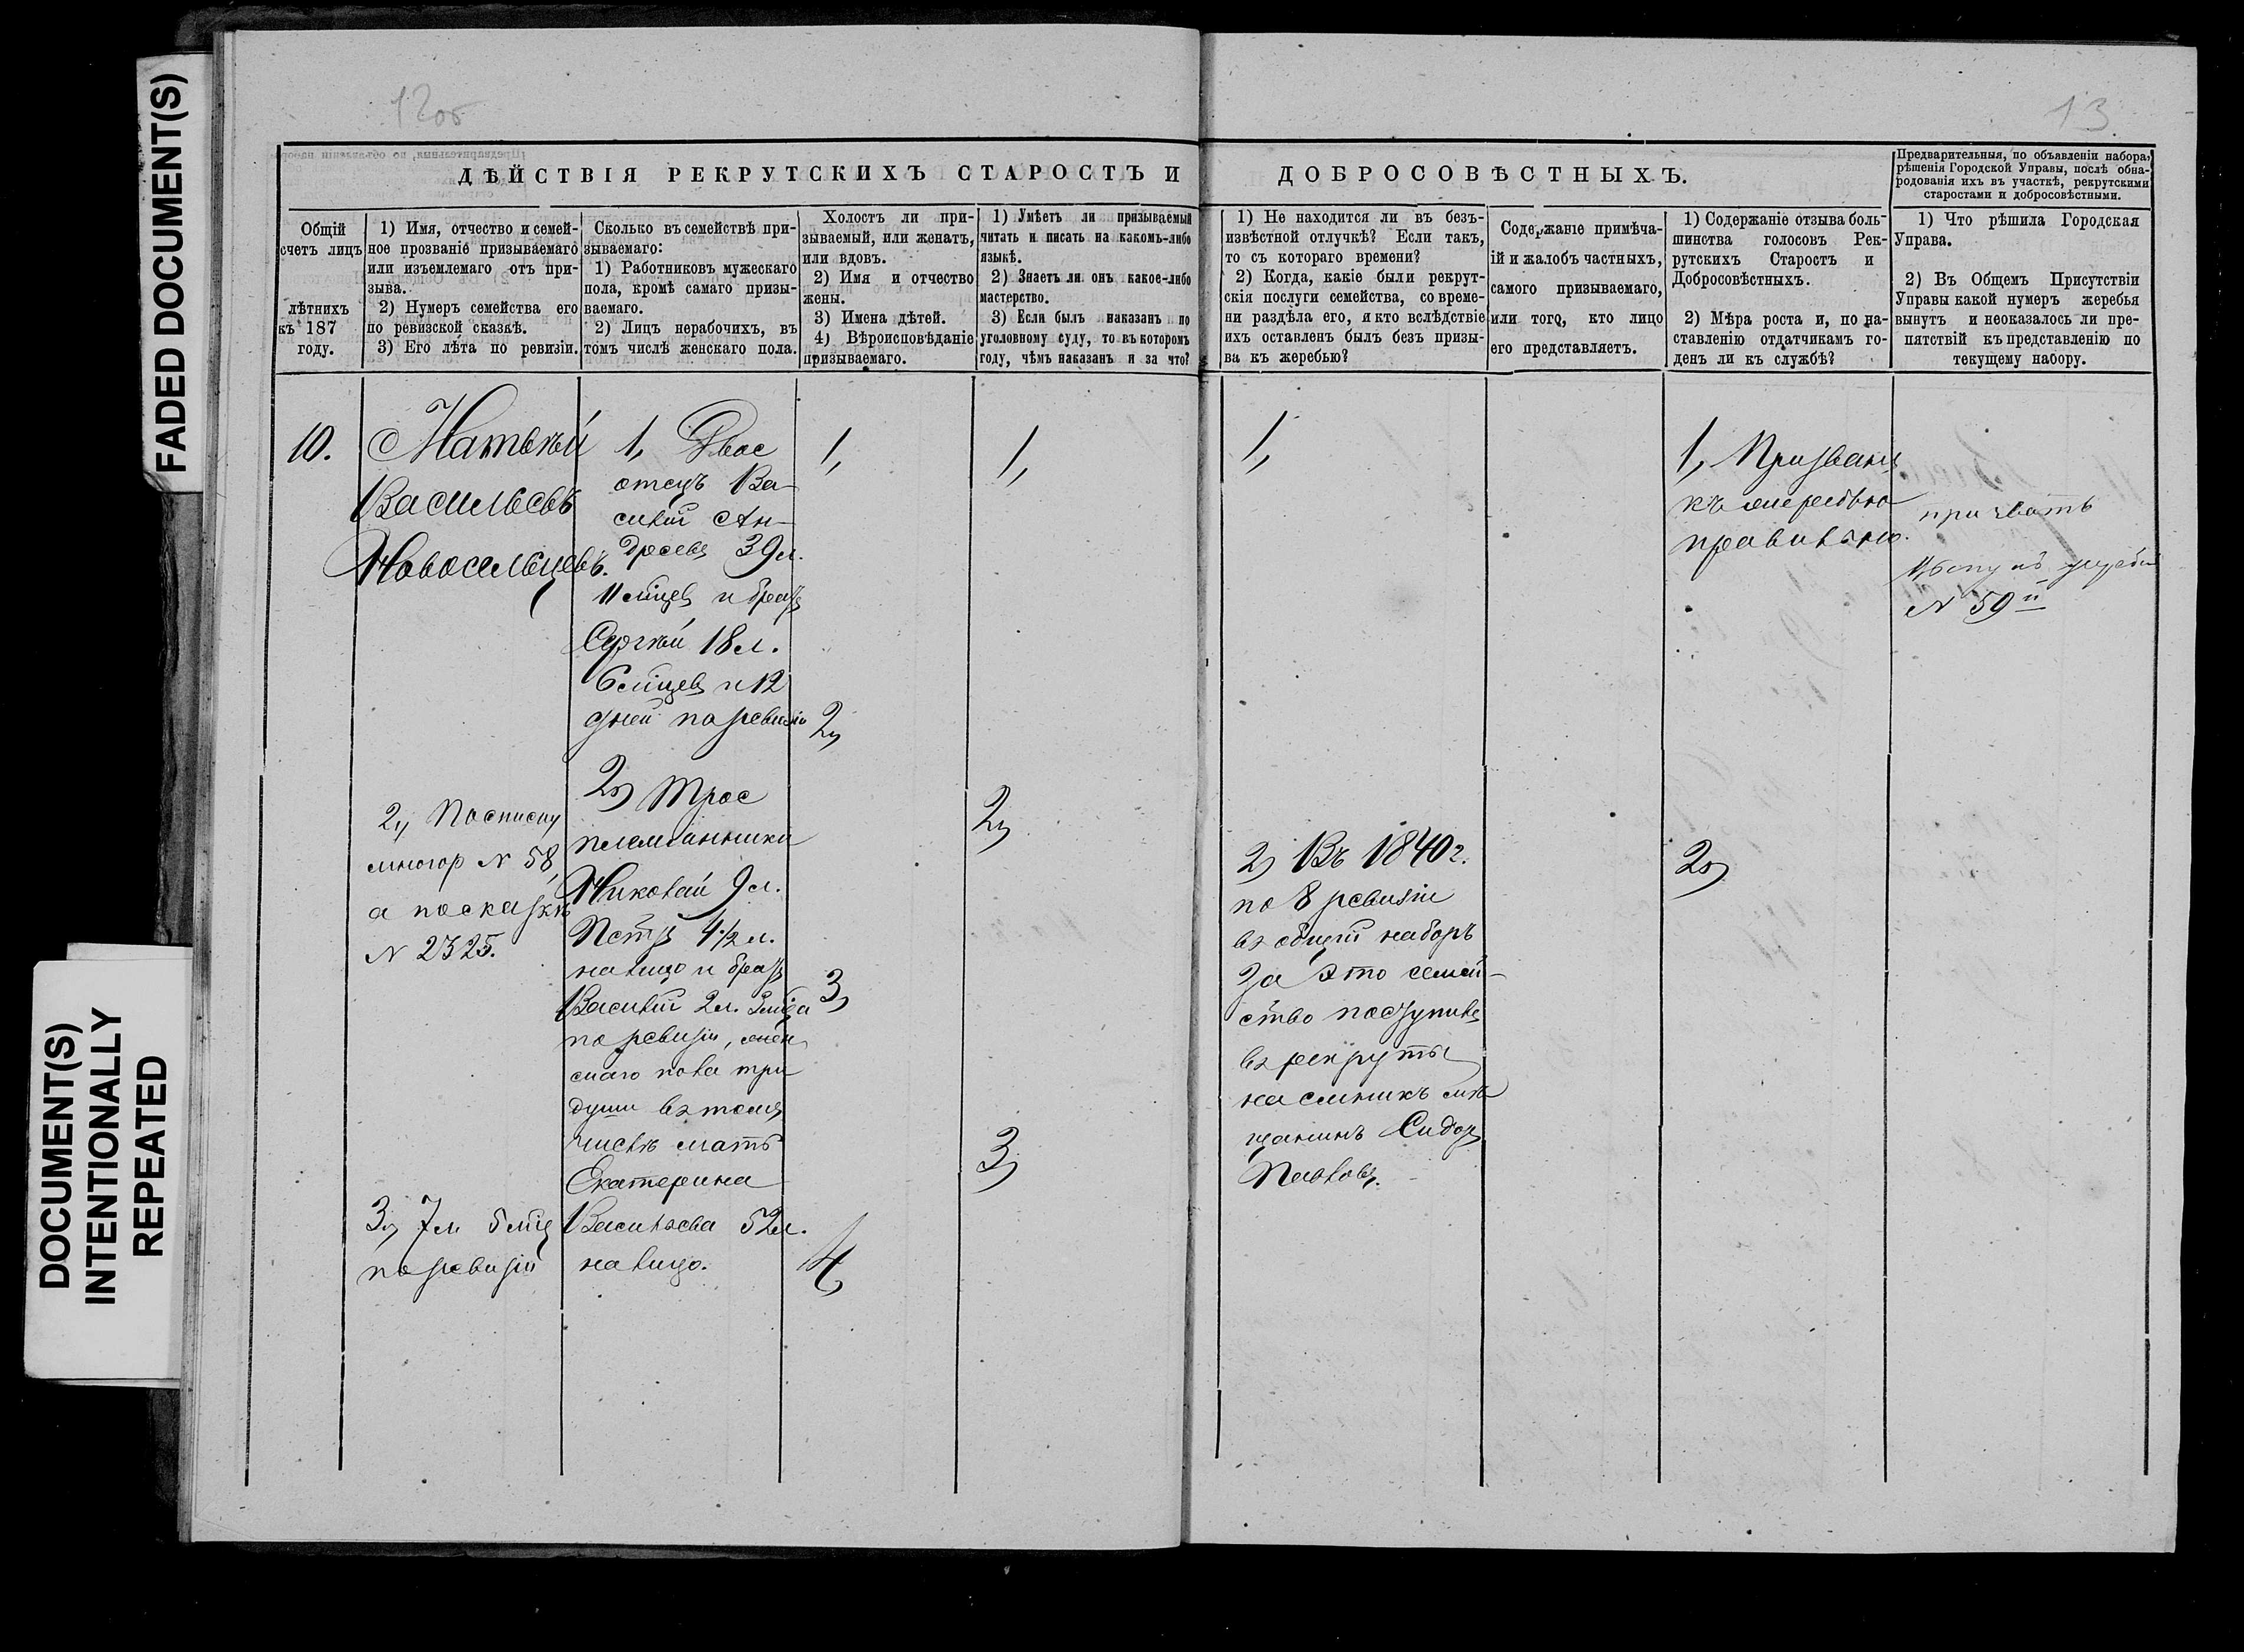 FADED DOCUMENT(S)
DOCUMENT(S)
INTENTIONALLY
REPEATED
12об
13
ДѢЙСТВІЯ РЕКРУТСКИХЪ СТАРОСТЪ И
ДОБРОСОВѢСТНЫХЪ.
Предварительныя, по объявленіи набора,
рѣшенія Городской Управы, послѣ обна-
родованія ихъ въ участкѣ, рекрутскими
старостами и добросовѣстными.
Общій
счетъ лицъ
лѣтнихъ
къ 187
году.
1) Имя, отчество и семей-
ное прозваніе призываемаго
или изъемлемаго отъ при-
зыва.
2) Нумеръ семейства его
по ревизской сказкѣ.
3) Его лѣта по ревизіи.
Сколько въ семействѣ при-
зываемаго:
1) Работниковъ мужескаго
пола, кромѣ самаго призы-
ваемаго.
2) Лицъ нерабочихъ, въ
томъ числѣ женскаго пола.
Холостъ ли при-
зываемый, или женатъ,
или вдовъ.
2) Имя и отчество
жены.
3) Имена дѣтей.
4) Вѣроисповѣданіе
призываемаго.
1) Умѣетъ ли призываемый
читать и писать на какомъ-либо
языкѣ.
2) Знаетъ ли онъ какое-либо
мастерство.
3) Если былъ наказанъ по
уголовному суду, то въ которомъ
году, чѣмъ наказанъ и за что?
1) Не находится ли въ безъ-
извѣстной отлучкѣ? Если такъ,
то съ котораго времени?
2) Когда, какіе были рекрут-
скія послуги семейства, со време-
ни раздѣла его, и кто вслѣдствіе
ихъ оставленъ былъ безъ призы-
ва къ жеребью?
Содержаніе примѣча-
ій и жалобъ частныхъ,
самого призываемаго,
или того, кто лицо
его представляетъ.
1) Содержаніе отзыва боль-
шинства голосовъ Рек-
рутскихъ Старостъ и
Добросовѣстныхъ.
2) Мѣра роста и, по на-
ставленію отдатчикамъ го-
денъ ли къ службѣ?
1) Что рѣшила Городская
Управа.
2) Въ Общемъ Присутствіи
Управы какой нумеръ жеребья
вынутъ и неоказалось ли пре-
пятствій къ представленію по
текущему набору.
10.
Матвѣй
Васильевъ
Новосельцевъ.
2, По списку
многор № 58,
а по сказкѣ
№ 2325.
3, 7 л. 5 мѣц
по ревизіи
1, Двое
отецъ Ва-
силій Ан-
дреевъ 39 л.
11 мѣцевъ и братъ
Сергѣй 18 л.
6 мѣцевъ и 12
дней по ревизіи
2, Трое
племянники
Николай 9 л.
Петръ 4½ л.
на лицо и братъ
Василій 2 л. 3 мѣца
по ревизіи, жен
скаго пола три
души въ томъ
числѣ мать
Екатерина
Васильева 52 л.
на лицо.
1,
2,
3,
4,
1,
2,
3,
1,
2, Въ 1840 г.
по 8 ревизіи
въ общій наборъ
за это семей-
ство поступилъ
въ рекруты
наемникъ мѣ
щанинъ Сидоръ
Павловъ.
1, Призванъ
къ очередьно
правильно.
2,
призвать
№ 59й